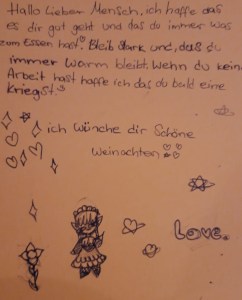 Hallo Lieber Mensch, ich haffe das
es dir gut geht und das du immer was
zum Essen hast. Bleib stark und, daß du
immer warm bleibt. Wenn du keine
Arbeit hast haffe ich das du bald eine
Kriegst.
ich wünche dir Schöne
Weinachten.
Love.